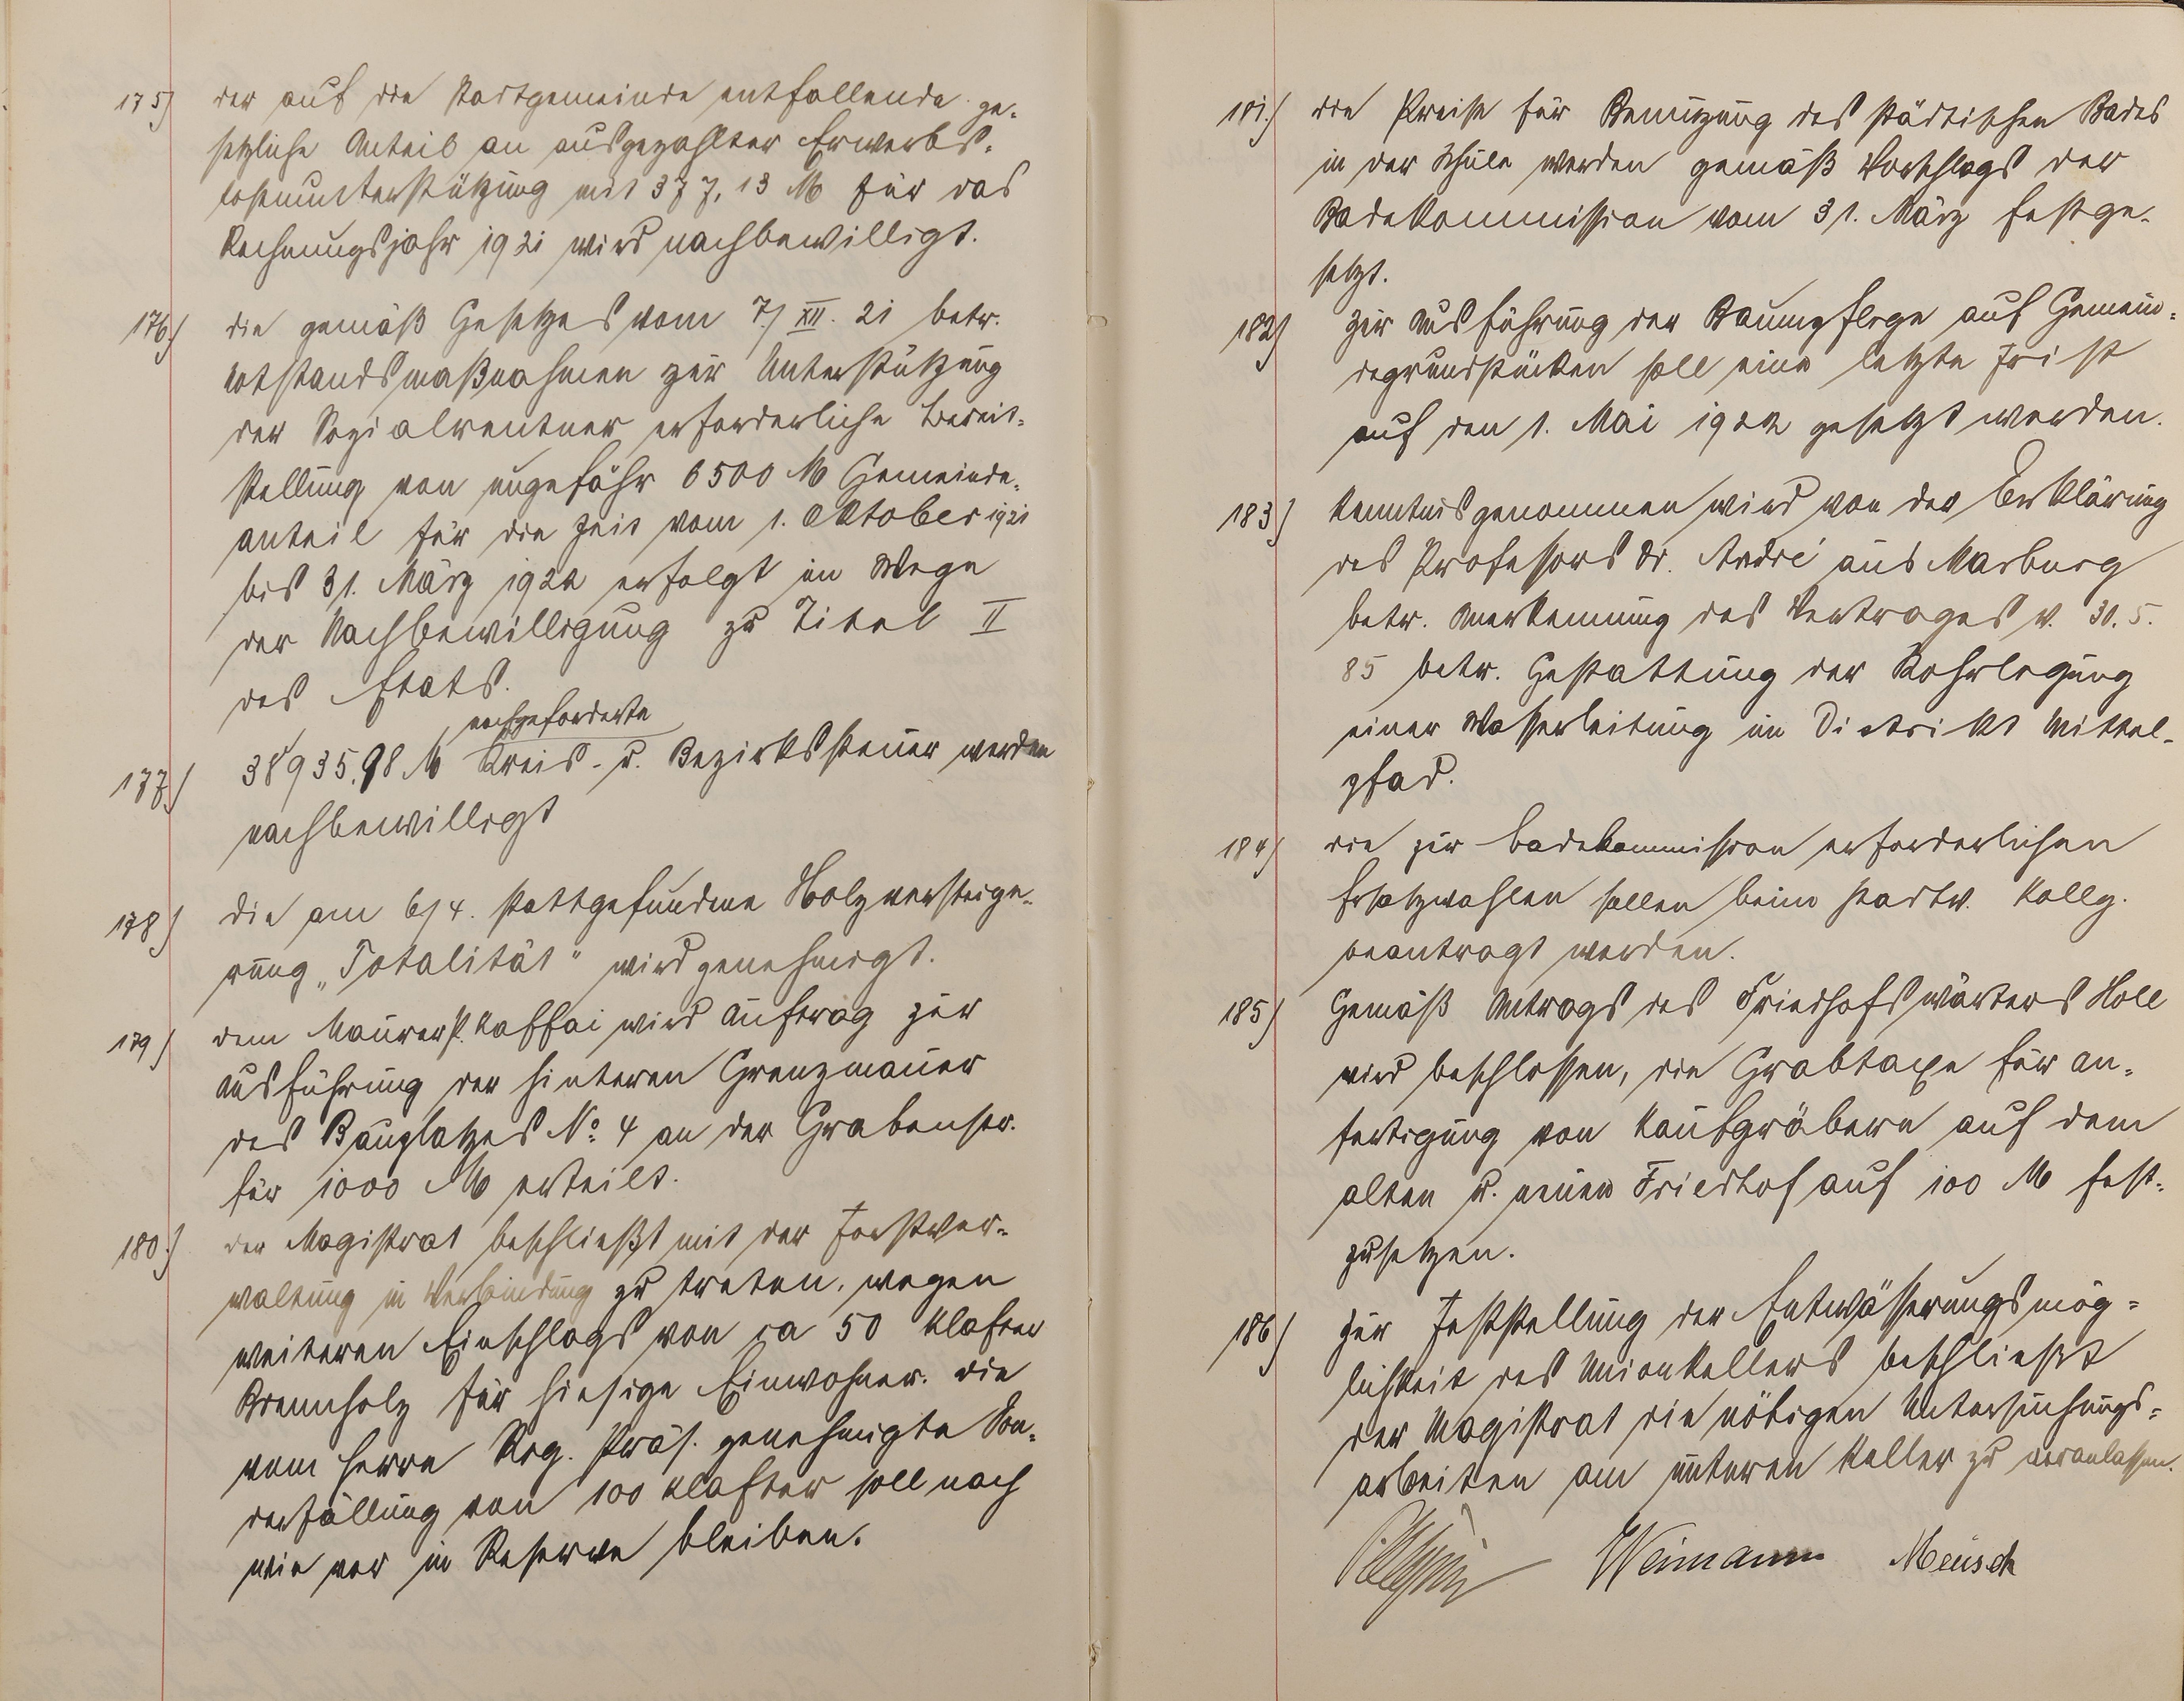 175) der auf die Stadtgemeinde entfallende ge-
setzliche Anteil an ausgezahlter Erwerbs-
losenunterstützung mit 377,13 M für das
Rechnungsjahr 1921 wird nachbewilligt.
176.) die gemäß Gesetzes vom 7./XII. 21 betr.
Notstandsmaßnahmen zur Unterstützung
der Sozialrentner erforderliche Bereit-
stellung von ungefähr 6500 M Gemeinde-
anteil für die Zeit vom 1. Oktober 1921
bis 31. März 1922 erfolgt im Wege
der Nachbewilligung zu Titel II
des Etats.
nachgeforderte
177.) 38935.98 M Kreis- u. Bezirkssteuer werden
nachbewilligt
178) die am 6/4. stattgefundene Holzversteige-
rung „Totalität" wird genehmigt.
179) dem Maurer P. Kaffai wird Auftrag zur
Ausführung der hinteren Grenzmauer
des Bauplatzes No. 4 an der Grabenstr.
für 1000 M erteilt.
180.) der Magistrat beschließt mit der Forstver-
waltung in Verbindung zu treten, wegen
weiteren Einschlags von ca 50 Klafter
Brennholz für hiesige Einwohner. die
vom Herrn Reg. Präs. genehmigte Son-
derfällung von 100 Klafter soll nach
wie vor in Reserve bleiben.
181.) die Preise für Benutzung des städtischen Bades
in der Schule werden gemäß Vorschlags der
Badekommission vom 31. März festge-
setzt.
182) Zur Ausführung der Baumpflege auf Gemein-
degrundstücken soll eine letzte Frist
auf den 1. Mai 1922 gesetzt werden.
183) Kenntnis genommen wird von der Erklärung
des Professors Dr. André aus Marburg
betr. Anerkennung des Vertrages v. 30.5.
85 betr. Gestattung der Rohrlegung
einer Wasserleitung im Distrikt Mittel-
pfad.
184) die zur Badekommission erforderlichen
Ersatzwahlen sollen beim Stadtv. Kolleg.
beantragt werden.
185) Gemäß Antrags des Friedhofswärters Holl
wird beschlossen, die Grabtaxe für An-
fertigung von Kaufgräbern auf dem
alten u. neuen Friedhof auf 100 M fest-
zusetzen.
186) zur Feststellung der Entwässerungsmög-
lichkeit des Unionkellers beschließt
der Magistrat die nötigen Untersuchungs-
arbeiten am unteren Keller zu veranlassen.
Weimann Meusch